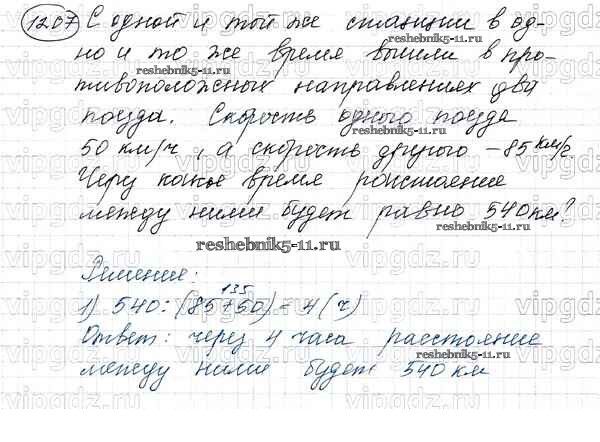 1207 С одной и той же станции в од-
но и то же время вышли в про-
тивоположных направлениях два
поезда. Скорость одного поезда
50 км/ч, а скорость другого – 85 км/ч.
Через какое время расстояние
между ними будет равно 540 км?
reshebnik5-11.ru
Решение:
135
1) 540 : (85+50) = 4 (ч)
Ответ: через 4 часа расстояние
между ними будет 540 км